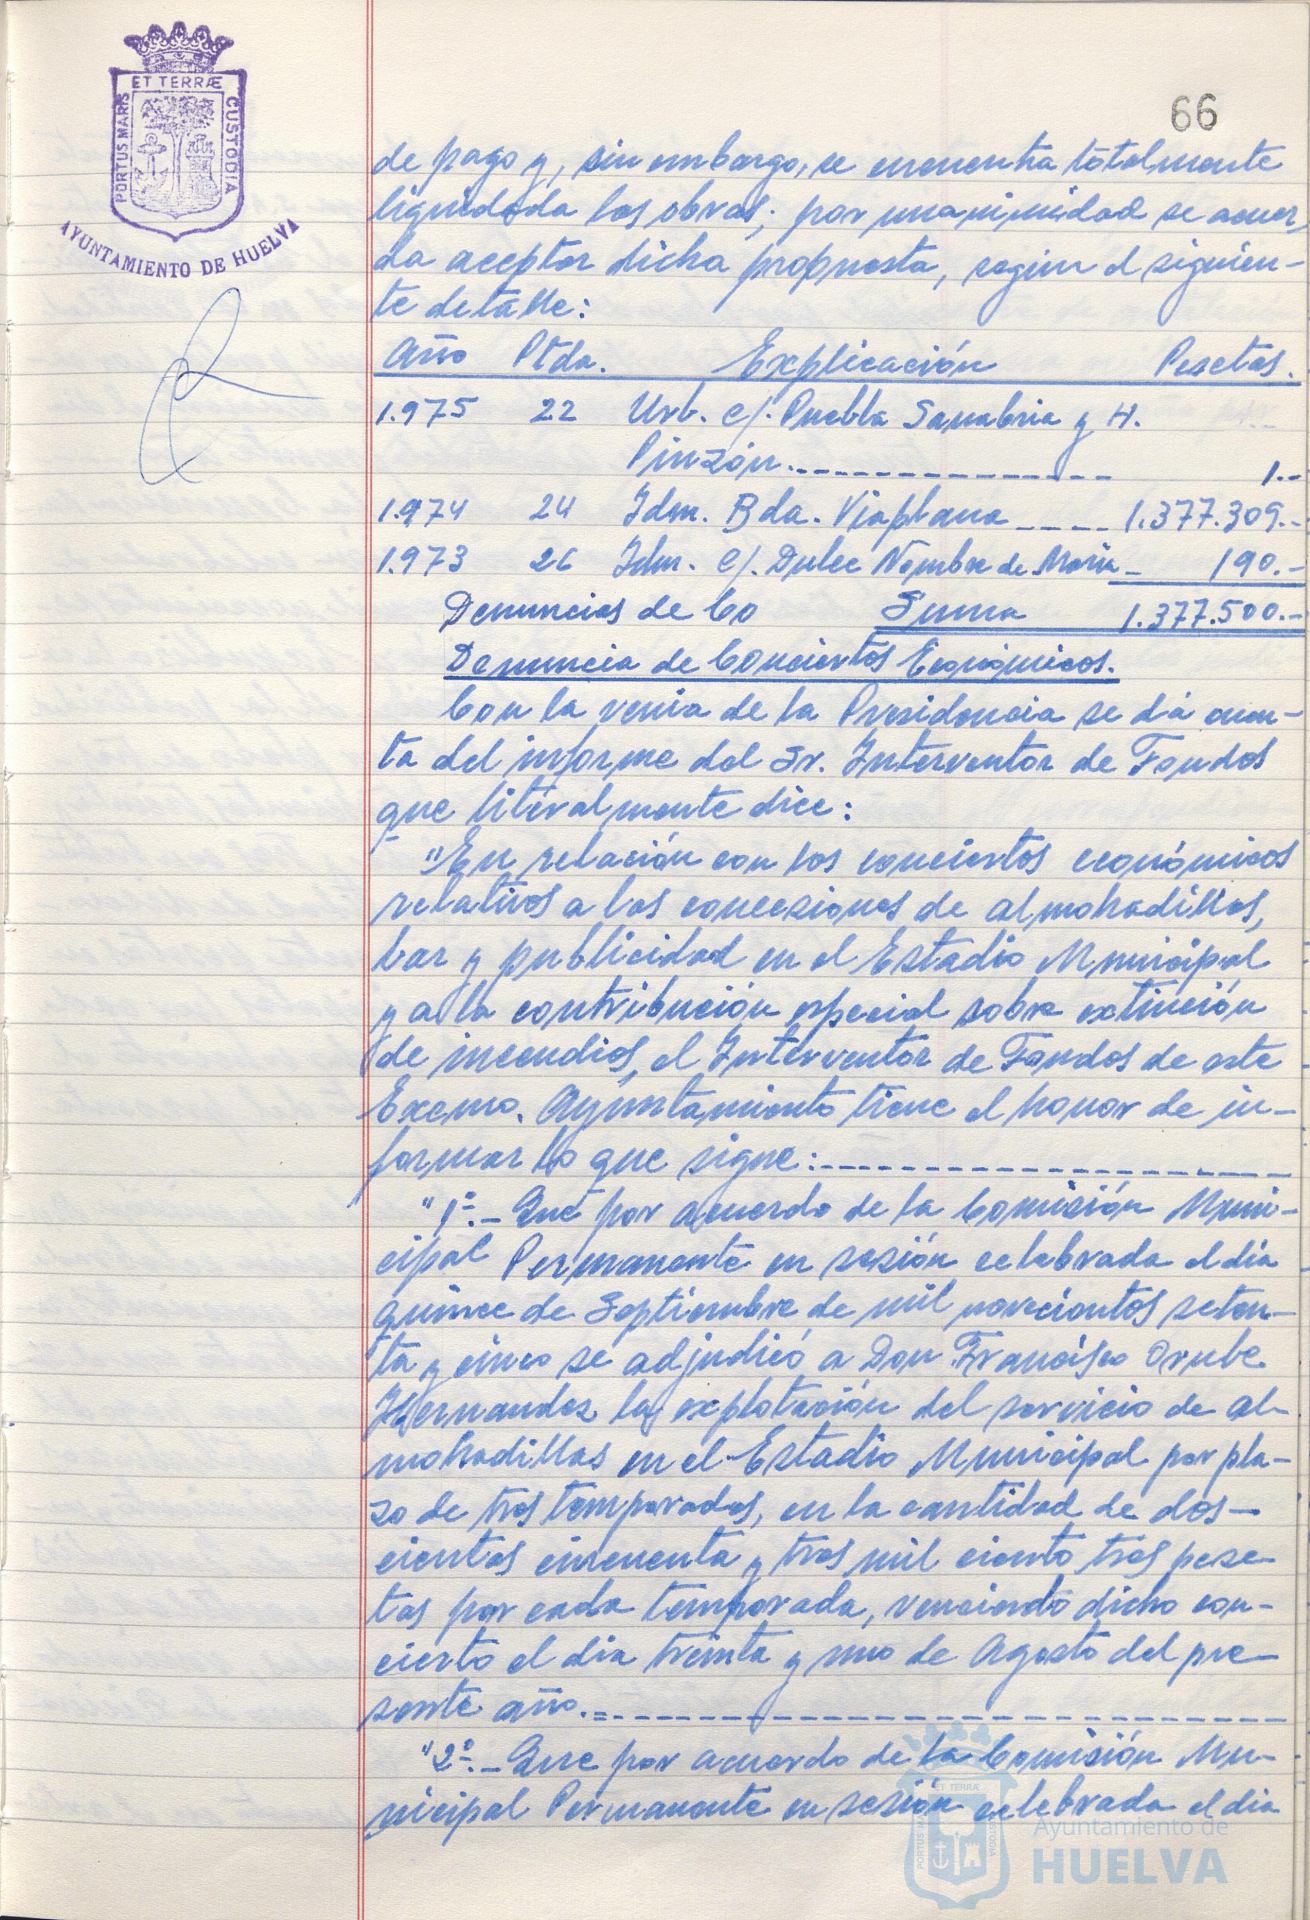 ET TERRÆ
PORTUS MARIS
CUSTODIA
AYUNTAMIENTO DE HUELVA
66
de pago y, sin embargo, se encuentra totalmente
liquidada las obras; por unanimidad se acuer,
da aceptar dicha propuesta, según el siguien-
te detalle:
Año Ptda. Explicación Pesetas.
1.975 22 Urb. c/. Puebla Sanabria y H.
Pinzón.---------------- 1.-
1.974 24 Idm. Bda. Viaplana ---- 1.377.309.-
1.973 26 Idm. c/. Dulce Nombre de María - 190.-
Denuncias de Co Suma 1.377.500.-
Denuncia de Conciertos Económicos.
Con la venia de la Presidencia se dá cuen-
ta del informe del Sr. Interventor de Fondos
que literalmente dice:
"En relación con los conciertos económicos
relativos a las concesiones de almohadillas,
bar y publicidad en el Estadio Municipal
y a la contribución especial sobre extinción
de incendios, el Interventor de Fondos de este
Excmo. Ayuntamiento tiene el honor de in-
formar lo que sigue:--------------------
"1º.- Que por acuerdo de la Comisión Muni-
cipal Permanente en sesión celebrada el día
quince de Septiembre de mil novecientos seten-
ta y cinco se adjudicó a Don Francisco Orube
Hernandez la explotación del servicio de al-
mohadillas en el Estadio Municipal por pla-
zo de tres temporadas, en la cantidad de dos-
cientas cincuenta y tres mil ciento tres pese-
tas por cada temporada, venciendo dicho con-
cierto el dia treinta y uno de Agosto del pre-
sente año.-----------------------------
"2º.- Que por acuerdo de la Comisión Mu-
nicipal Permanente en sesión celebrada el dia
ET TERRÆ
PORTUS MARIS
CUSTODIA
Ayuntamiento de
HUELVA